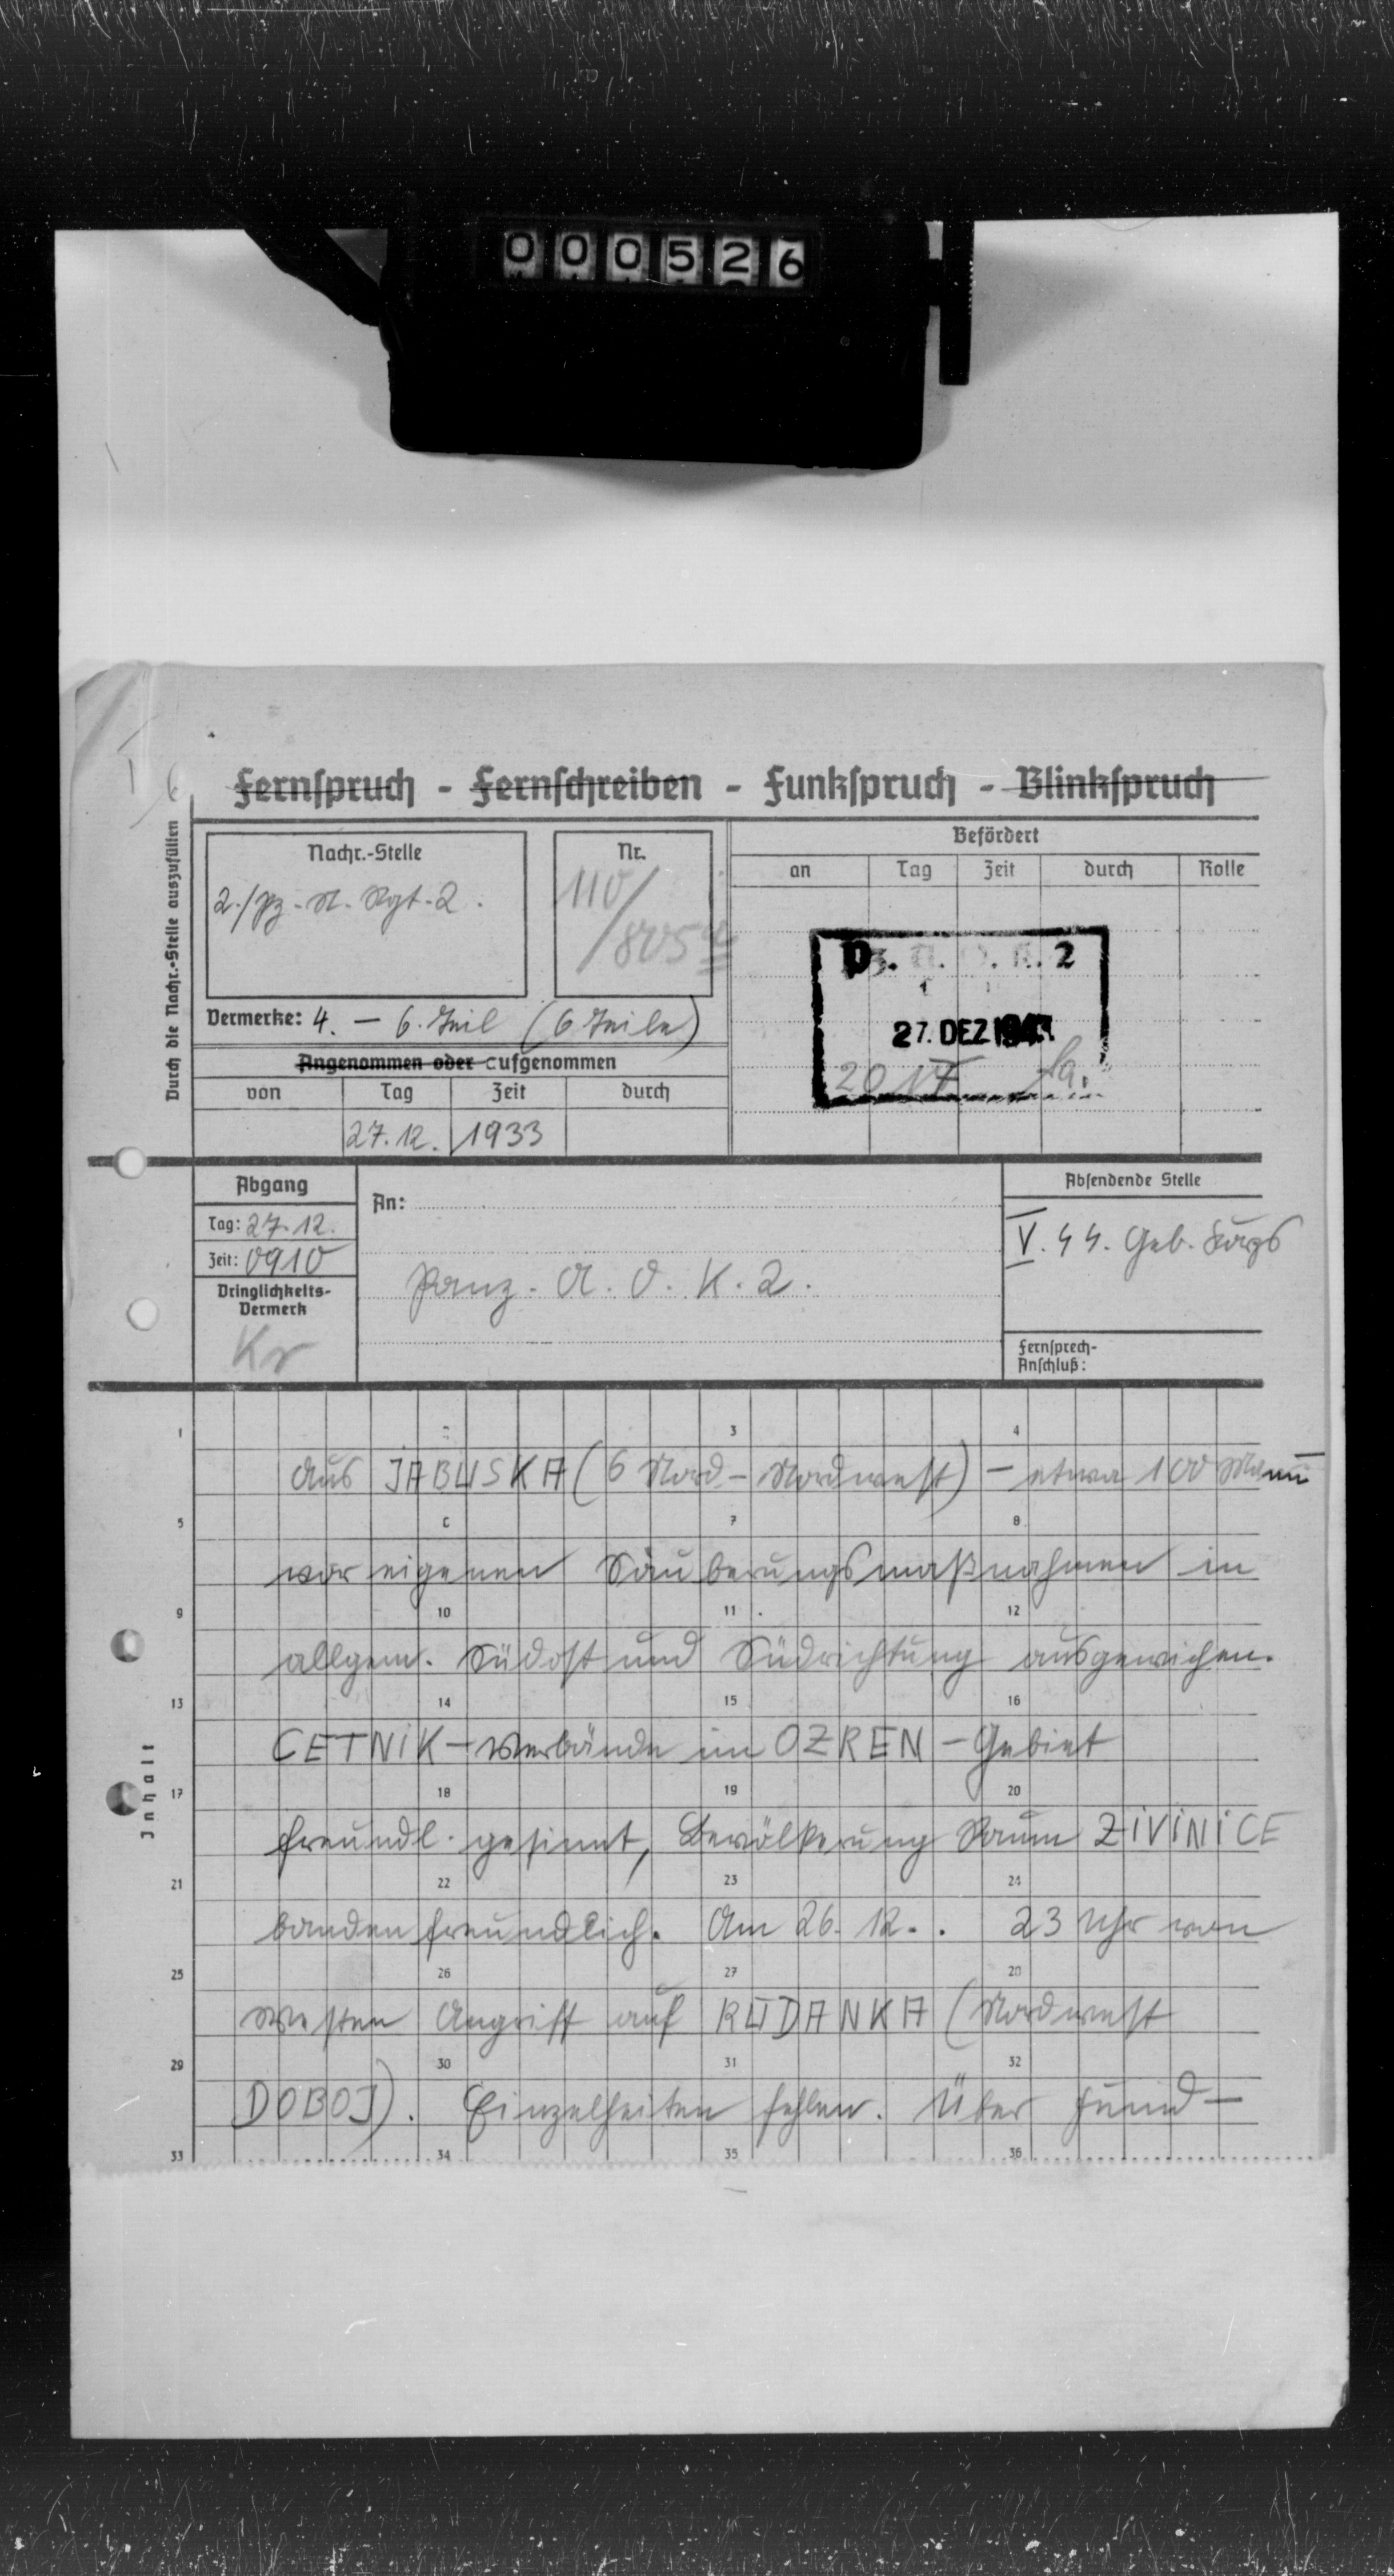 000526
Fernspruch - Fernschreiben - Funkspruch - Blinkspruch
Durch die Nachr.-Stelle auszufüllen
Nachr.-Stelle
2./Pz.-N. Rgt. 2.
Nr.
110/
/805
Befördert
an Tag Zeit durch Rolle
Pz. A. O. K. 2
27. DEZ 1943
2017
Vermerke: 4. – 6. Teil (6 Teile)
Angenommen oder aufgenommen
von Tag Zeit durch
27.12. 1933
Abgang
Tag: 27.12.
Zeit: 0910
Dringlichkeits-
Vermerk
Kr
An:
Panz. A. O. K. 2.
Absendende Stelle
V. SS. Geb. Korps
Fernsprech-
Anschluß:
Inhalt
1 3 4
Aus JABUSKA (6 Nord-Nordwest) – etwa 100 Mann
5 7 8
vor eigenen Säuberungsmaßnahmen in
9 10 11 12
allgem. Südost und Südrichtung ausgewichen.
13 14 15 16
CETNIK-Verbände im OZREN-Gebiet
17 18 19 20
freundl. gesinnt, Bevölkerung Raum ZIVINICE
21 22 23 24
bandenfreundlich. Am 26. 12.. 23 Uhr von
25 26 27 28
Westen Angriff auf RUDANKA (Nordwest
29 30 31 32
DOBOJ). Einzelheiten fehlen. Über Feind-
33 34 35 36